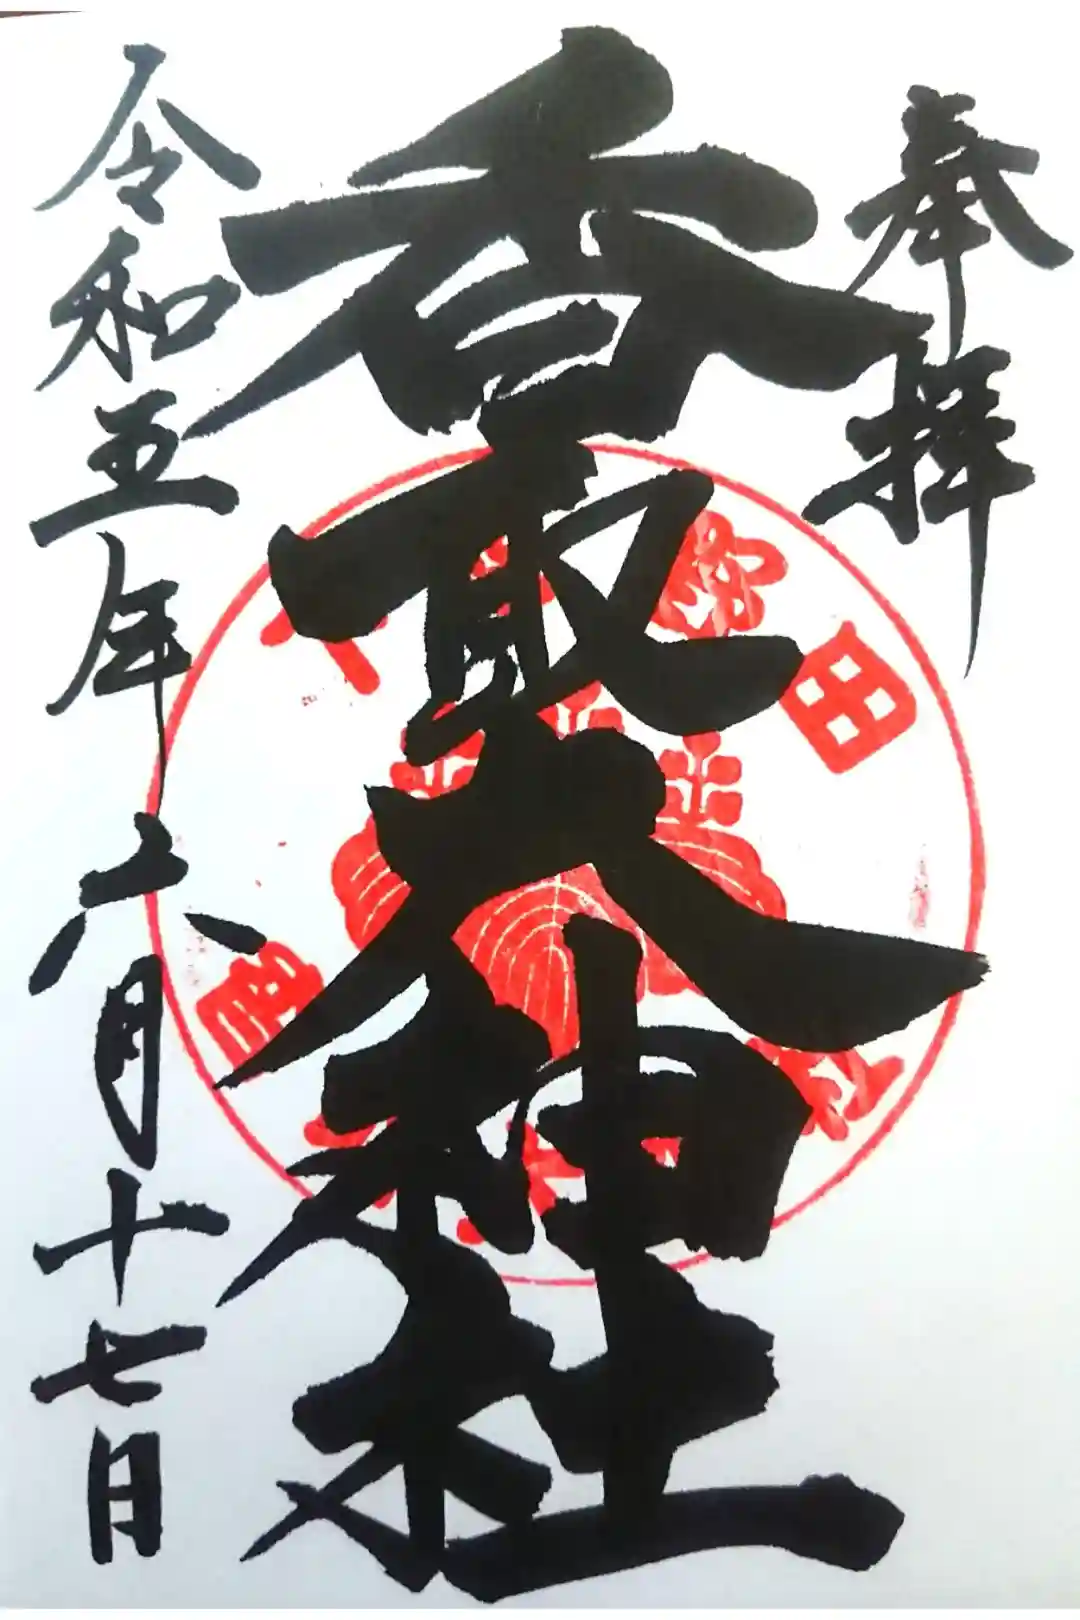 奉拝
香取大神社
令和五年六月十七日